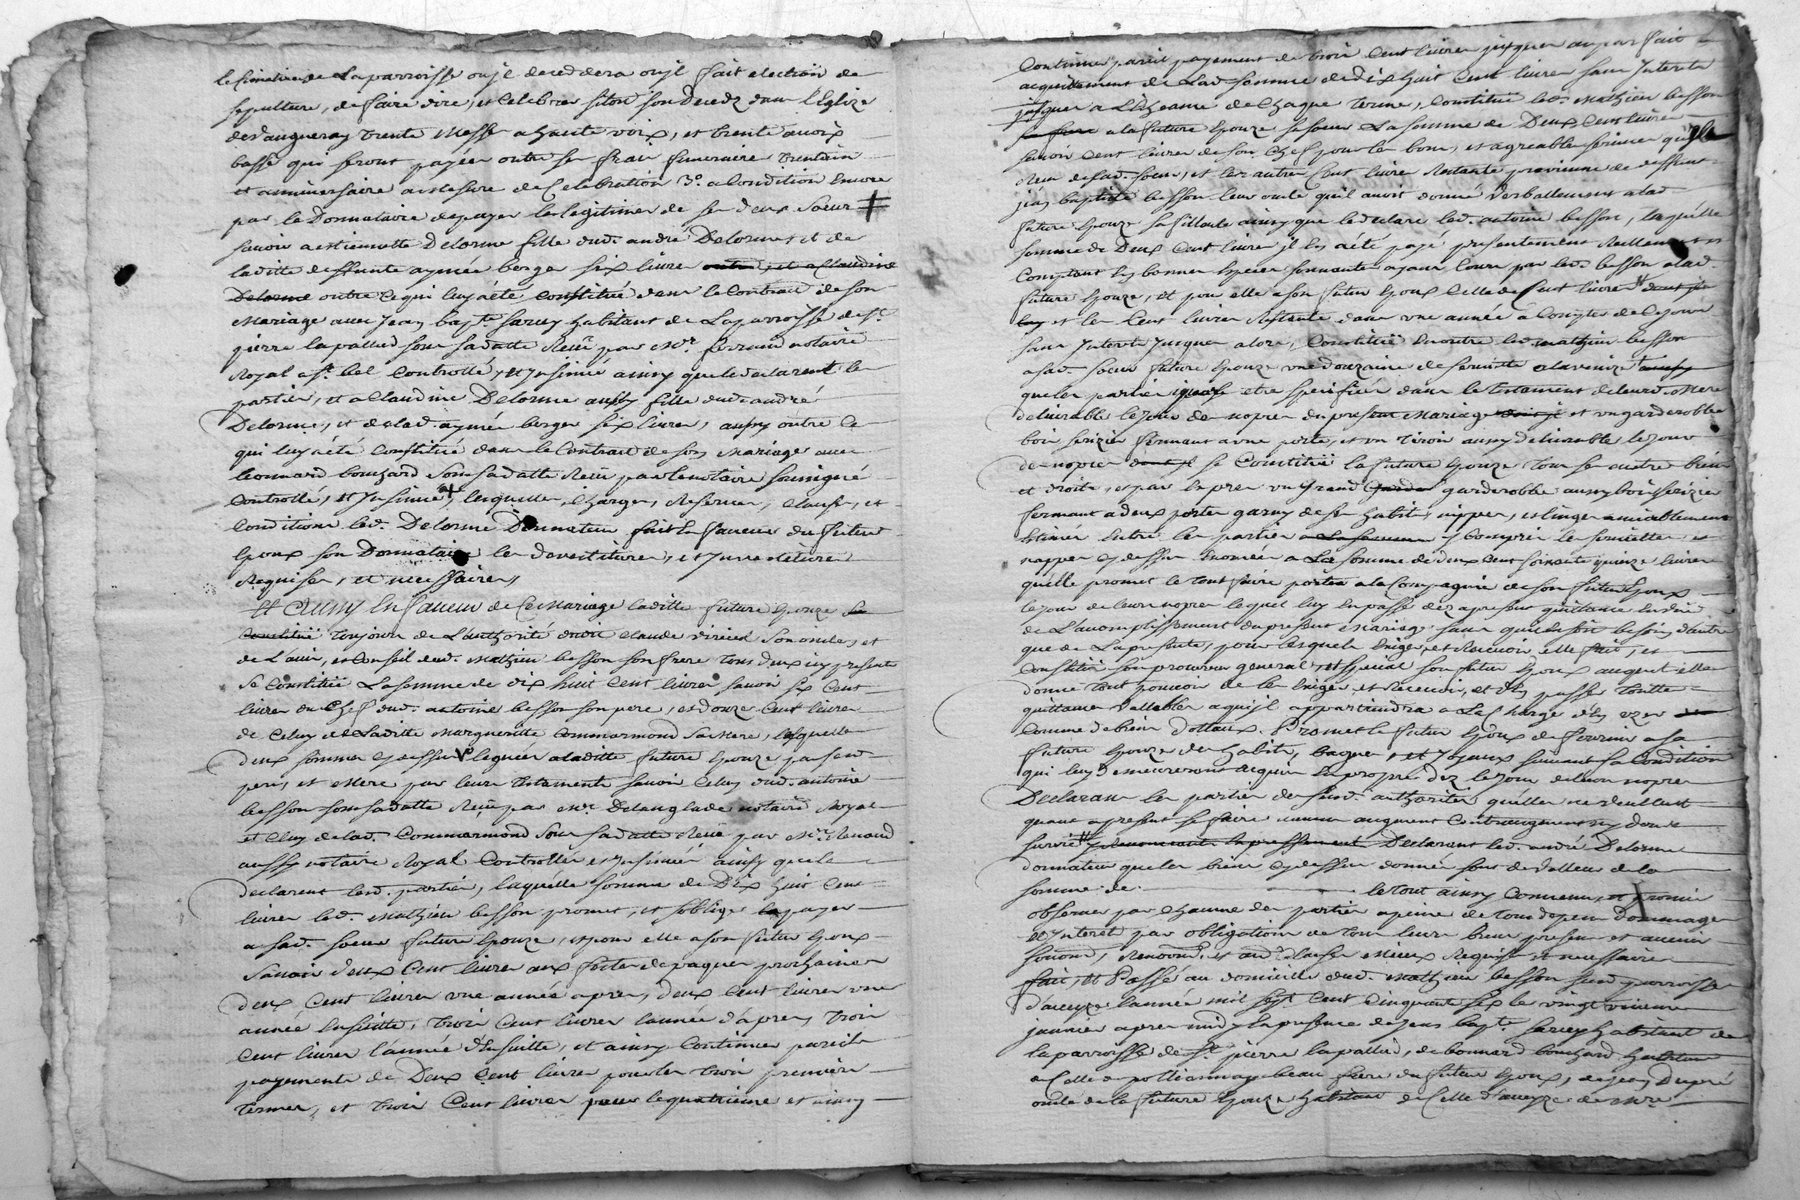 le Simetiere de La parroisse ou jl decedera ou jl fait election de
sepulture, de faire dire, et Celebrer sitost son Deced dans l'Eglize
de vaugneray trente Messe a haute voix, et trente a voix
basse qui seront payéer outre ses frais funeraire trentain
et anniversaire a mesure de Celebration 3.º a Condition Encore
par le Donnataire de payer les legitimes de ses deux soeurs ‡
savoir a estiennette Delorme fille dud. andré Delorme, et de
laditte deffunte aymée berger six livres outre, et a Claudine
Delorme outre Ce qui luy a été Constitué dans le Contract de son
Mariage avec Jean bapt.e sarvey habitant de La parroisse de S.t
pierre la pallud sous sa datte Receu par M.e ferrand notaire
Royal a S.t bel Controllé, et Insinué ainsy que le declarent les
parties, et a Claudine Delorme aussy fille dud. andré
Delorme, et de lad. aymée berger six livres, aussy outre Ce
qui luy a été Constitué dans le Contract de son Mariage avec
leonnard bouchard sous sa datte Receu par le notaire soussigné
Controllé, et Insinué, lesquelles, Charges, Reserves, Clauses, et
Conditions led. Delorme Donnateur fait En faveur du futur
Epoux son Donnataire les devestitures, et Investitures
Requises, et necessaires,
Et Aussy En faveur de Ce Mariage laditte future Epouze se
Constitue toujours de L'authorité dudit Claude son oncle, et
de L'avis, et Conseil dud. Mathieu besson son frere tous deux icy presents
Se Constitue La somme de dix huit Cent livres savoir six Cent
livres du Chef dud. antoine besson son pere, et douze Cent livres
de Celuy de Laditte Marguerite Commarmond sa Mere, lesquelles
deux sommes Cy dessus leguées a laditte future Epouze par send.
pere, et Mere par leurs testaments savoir Celuy dud. antoine
besson sous sa datte Receu par M.e Delanglade notaire Royal
et Celuy de lad. Commarmond sous sa datte Receu par M.e Renaud
aussy notaire Royal Controllés et Insinués ainsy que le
declarent lesd. parties, laquelle somme de Dix huit Cent
livres led. Mathieu besson promet, et s'oblige la payer
a sad. soeur future Epouze, et pour elle a son futur Epoux
Savoir deux Cent livres aux festes de paques prochaines
deux Cent livres une année apres, deux Cent livres une
année Ensuitte, trois Cent livres l'année d'apres, trois
Cent livres l'année d'Ensuitte, et ainsy Continuer pareils
payements de Deux Cent livres pour les trois premiers
termes, et trois Cent livres pour le quatrieme et ainsy
Continuer pareil payement de trois Cent livres jusques au parfait
acquittement de Lad. somme de dix huit Cent livres sans Interets
jusques a L'Echeance de Chaque terme, Constitue led. Mathieu besson
son frere a la future Epouze sa soeur La somme de Deux Cent livres
savoir Cent livres de son Chef pour les bons, et agreables services qu'il a
Receu de sad. soeur, et les autres Cent livres Restante provienne de deffunt
jean baptiste besson leur oncle qu'il avoit donné Verballement a lad.
future Epouze sa filleule ainsy que le declare led. antoine besson, laquelle
somme de Deux Cent livres jl En a été payé presentement Reellement
Comptant En bonnes Especes sonnante ayant Cours par led. besson a lad.
future Epouze, et pour elle a son futur Epoux Celle de Cent livres dont jl
et les Cent livres Restante dans une année a Compter de Ce jour
sans Interets Jusques alors, Constitue En outre led. Mathieu besson
a sad. soeur future Epouze une douzaine de serviette a la venize aussy
que les parties etre specifiées dans le testament de leurd. Mere
delivrable le jour de nopces du present Mariage et un garderobbe
bois serizier fermant a une porte, et un tiroir aussy delivrable le jour
de nopces se Constitue la future Epouze tous ses autres biens
et droits, et par Expres un Grand garderobbe aussy bois serizier
fermant a deux portes garny de ses habits, nippes, et linges amiablement
Estimés Entre les parties Compris les serviettes, et
nappes Cy dessus Enoncées a La somme de deux Cent soixante quinze livres
qu'elle promet le tout faire porter a la Compagnie de son futur Epoux
le jour de leurs nopces lequel luy En passe dez a present quittance En vue
de L'accomplissement du present Mariage sans qu'il En soit besoin d'autre
que de La presente, pour lesquels Exiger, et Recevoir elle fait, et
Constitue son procureur general, et special son futur Epoux auquel elle
donne tout pouvoir de les Exiger, et Recevoir, et d'En passer toutte
quittances Vallables a qui jl appartiendra a La Charge d'En uzer
Comme de biens Dottaux. Promet le futur Epoux de fournir a sa
future Epouze des habits, bagues, et Joyaux suivant sa Condition
qui luy demeureront acquis En propre dez le jour de leurs nopces
Declarans les parties de leurd. authorités qu'elles ne veullent
quant a present se faire aucuns augment Contraugment ny dons de
survie Declarant led. andré Delorme
donnateur que les biens Cy dessus donnés sont de valleur de la
somme de                le tout ainsy Convenu, et promis
observer par Chacune des parties a peine de tous depens dommages
et Interets par obligation de tous leurs biens presens et avenir
soumis, Renonc. et aud. Clauses Mieux Requises et necessaires
fait, Et Passé au domicile dud. Mathieu besson sud. parroisse
d'aveyze l'année mil sept Cent Cinquante six le vingt
janvier apres midy En presence de jean bapt.e sarvey habitant de
la parroisse de S.t pierre la pallud, de leonnard bouchard habitant
de Celle de pollionnay beau frere du futur Epoux, de jean Dupré
oncle de la future Epouze habitant de Celle d'aveyze de M.re